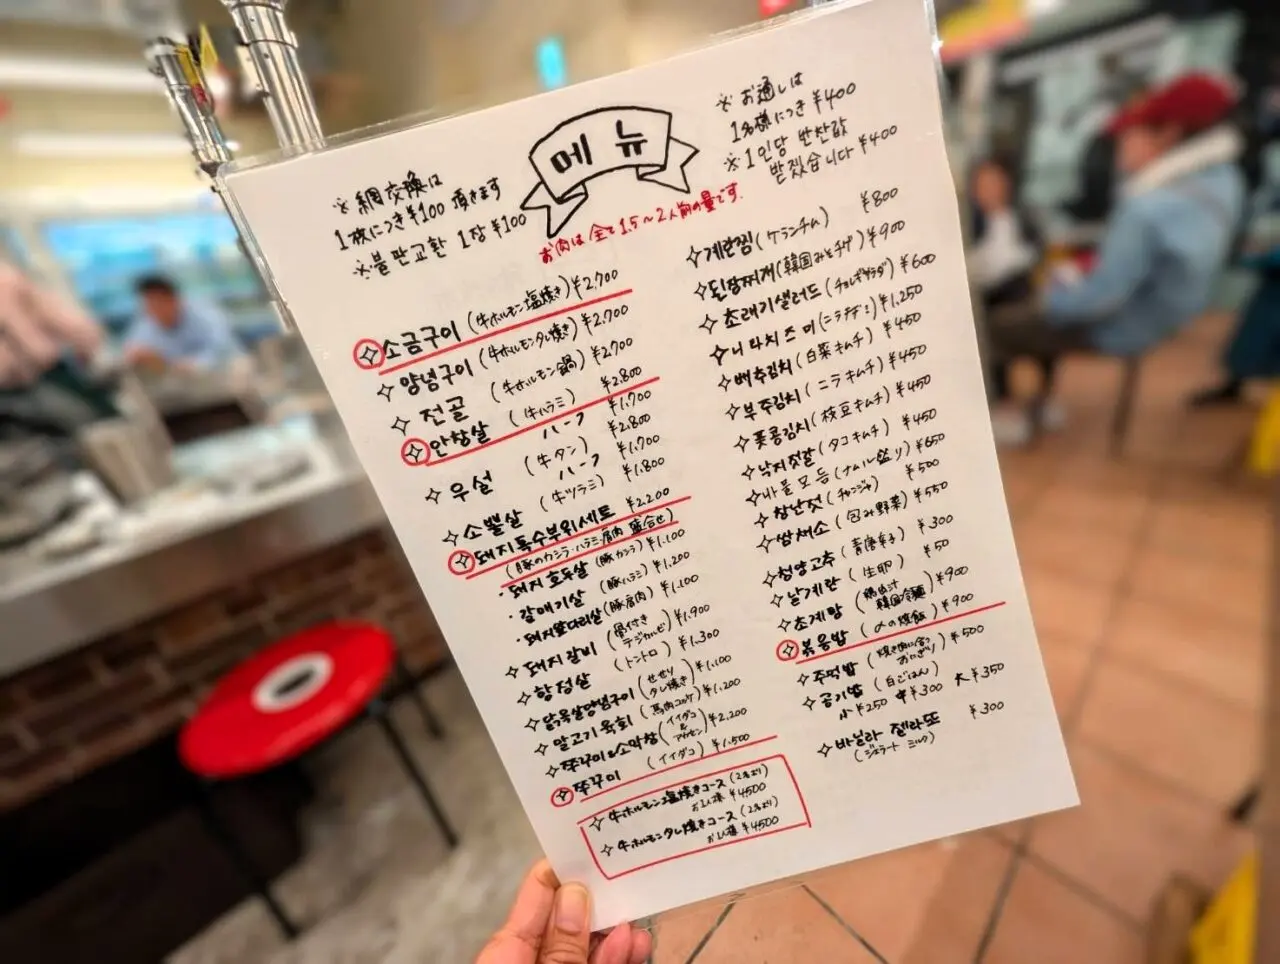 메뉴
※ 網交換は
1枚につき¥100 頂きます
※불판교환 1장 ¥100
※ お通しは
1名様につき ¥400
※ 1인당 반찬값
받겠습니다 ¥400
お肉は全て1.5〜2人前の量です.
소금구이 (牛ホルモン塩焼き) ¥2,700
양념구이 (牛ホルモンタレ焼き) ¥2,700
전골 (牛ホルモン鍋) ¥2,700
안창살 (牛ハラミ) ¥2,800
ハーフ ¥1,700
우설 (牛タン) ¥2,800
ハーフ ¥1,700
소뽈살 (牛ツラミ) ¥1,800
돼지특수부위세트 ¥2,200
(豚のカシラ・ハラミ・肩肉 盛合せ)
・돼지호두살 (豚カシラ) ¥1,100
・갈매기살 (豚ハラミ) ¥1,200
・돼지앞다리살 (豚肩肉) ¥1,100
돼지갈비 (骨付きデジカルビ) ¥1,900
항정살 (トントロ) ¥1,300
닭목살양념구이 (せせりタレ焼き) ¥1,100
말고기육회 (馬肉ユッケ) ¥1,200
쭈꾸미&소막창 (イイダコ&アカセン) ¥2,200
쭈꾸미 (イイダコ) ¥1,500
牛ホルモン塩焼きコース (2名より)
お1人様 ¥4500
牛ホルモンタレ焼きコース (2名より)
お1人様 ¥4500
계란찜 (ケランチム) ¥800
된장찌개 (韓国みそチゲ) ¥900
초래기샐러드 (チョレギサラダ) ¥600
니라치즈미 (ニラチヂミ) ¥1,250
배추김치 (白菜キムチ) ¥450
부추김치 (ニラキムチ) ¥450
풋콩김치 (枝豆キムチ) ¥450
낙지젓갈 (タコキムチ) ¥450
나물모듬 (ナムル盛り) ¥650
창난젓 (チャンジャ) ¥500
쌈채소 (包み野菜) ¥550
청양고추 (青唐辛子) ¥300
날계란 (生卵) ¥50
초계탕 (鶏出汁韓国冷麺) ¥900
볶음밥 (〆の焼飯) ¥900
주먹밥 (焼き肉に合うおにぎり) ¥500
공기밥 (白ごはん)
小 ¥250 中 ¥300 大 ¥350
바닐라 젤라또 ¥300
(ジェラート ミルク)